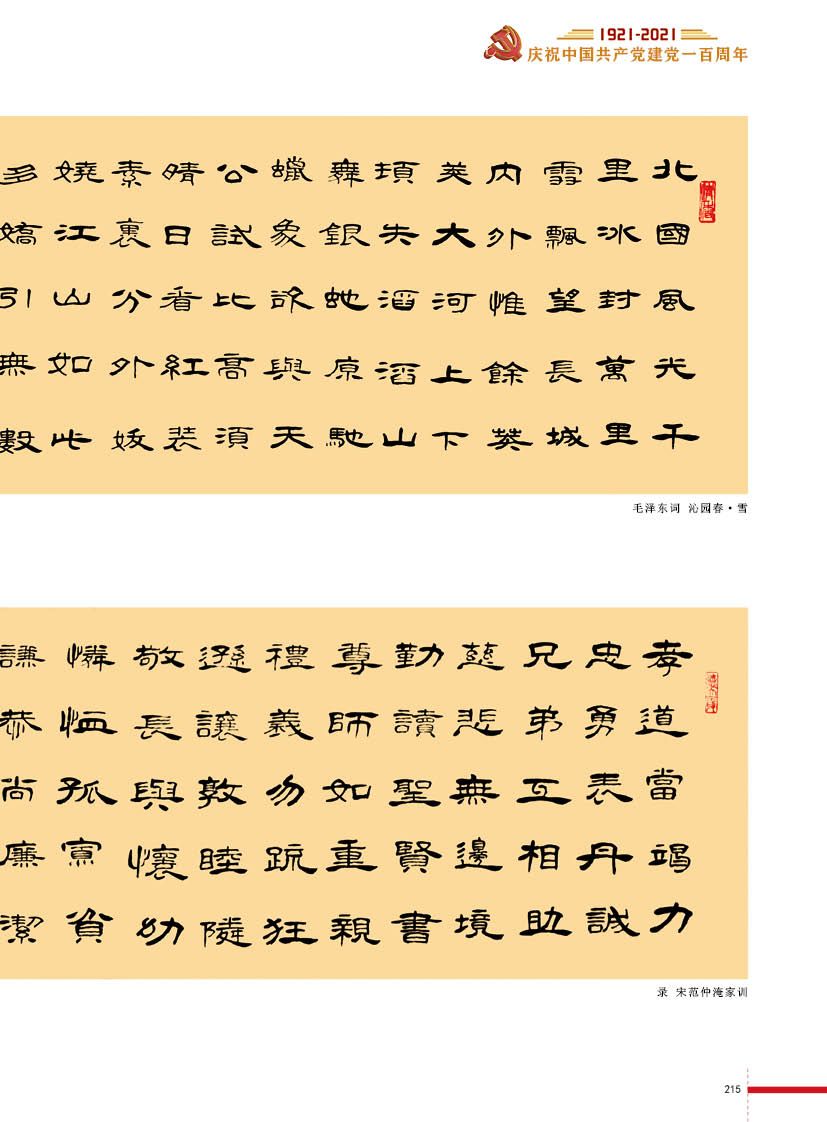 1921-2021
庆祝中国共产党建党一百周年
北國風光千
里冰封萬里
雪飄望長城
内外惟餘莽
莽大河上下
頓失滔滔山
舞銀蛇原馳
蠟象欲與天
公試比高須
晴日看紅裝
素裹分外妖
嬈江山如此
多嬌引無數
毛泽东词 沁园春·雪
孝道當竭力
忠勇表丹誠
兄弟互相助
慈悲無邊境
勤讀聖賢書
尊師如重親
禮義勿疏狂
遜讓敦睦隣
敬長與懷幼
憐恤孤寡貧
謙恭尚廉潔
录 宋范仲淹家训
215